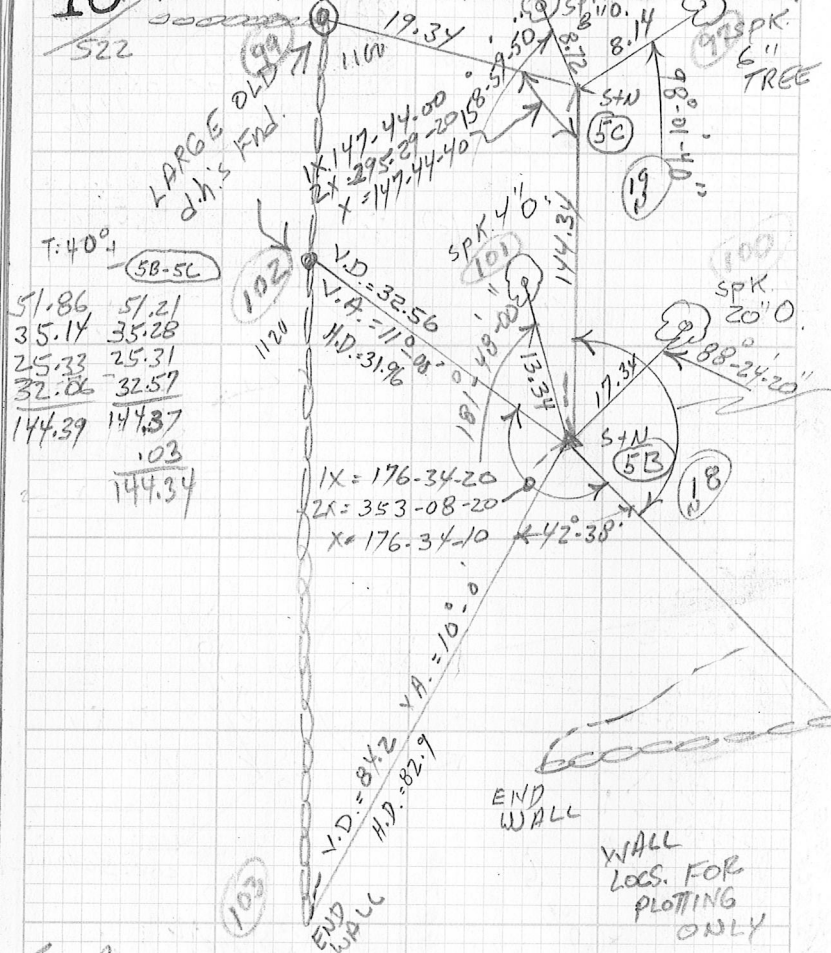 10
S22
99
19.34
SPK
8"O.
8.72
8.14
97
SPK.
6"
TREE
1100
LARGE OLD
d.h.'s Fnd.
1X.147-44.00
2X=295-29-20
X=147-44-40
158-59-50
S+N
5C
98°-01'-40"
19
T:40°+
5B-5C
51.86 51.21
35.14 35.28
25.33 25.31
32.06 32.57
144.39 144.37
.03
144.34
102
1120
V.D.=32.56
V.A.=11°-00'
H.D.=31.96
SPK.4"O.
101
181°-48'-00"
13.34
144.34
100
SPK.
20"O.
88°-24'-20"
17.34
S+N
5B
18
1X=176-34-20
2X=353-08-20
X=176-34-10
42°-38'
V.D.=84.2 V.A.=10°-0'
H.D.=82.9
END
WALL
WALL
LOCS. FOR
PLOTTING
ONLY
103
END
WALL